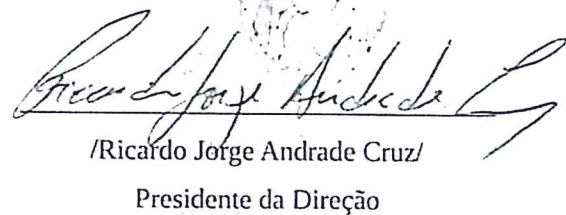 Ricardo Jorge Andrade Cruz
/Ricardo Jorge Andrade Cruz/
Presidente da Direção